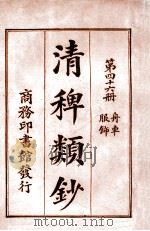 第四十六册
舟車
服飾
清稗類鈔
商務印書館發行